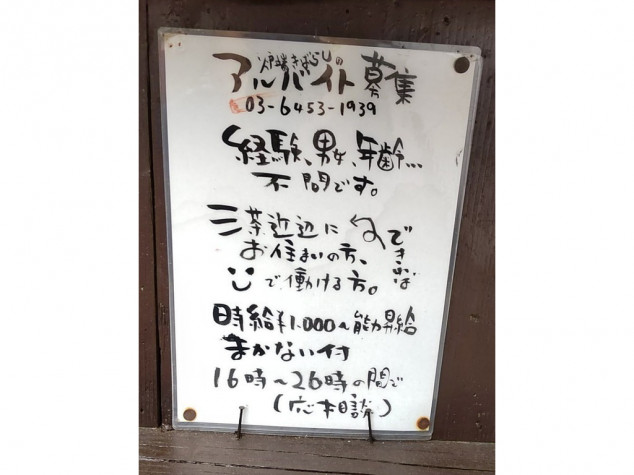 炉端きばらしの
アルバイト募集
03-6453-1939
経験、男女、年齢…
不問です。
三茶近辺に
お住まいの方、
できれば
で働ける方。
時給¥1.000～能力昇給
まかない付
16時～26時の間で
(応相談)